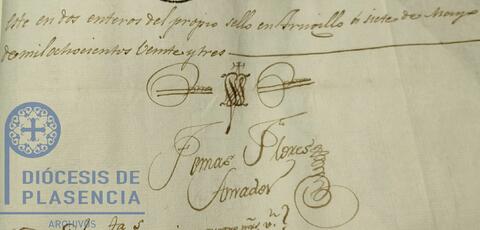 este en dos enteros del propio sello en Truxillo á siete de Mayo
de mil ochocientos veinte y tres
Tomas Flores
Amador
DIÓCESIS DE
PLASENCIA
ARCHIVOS